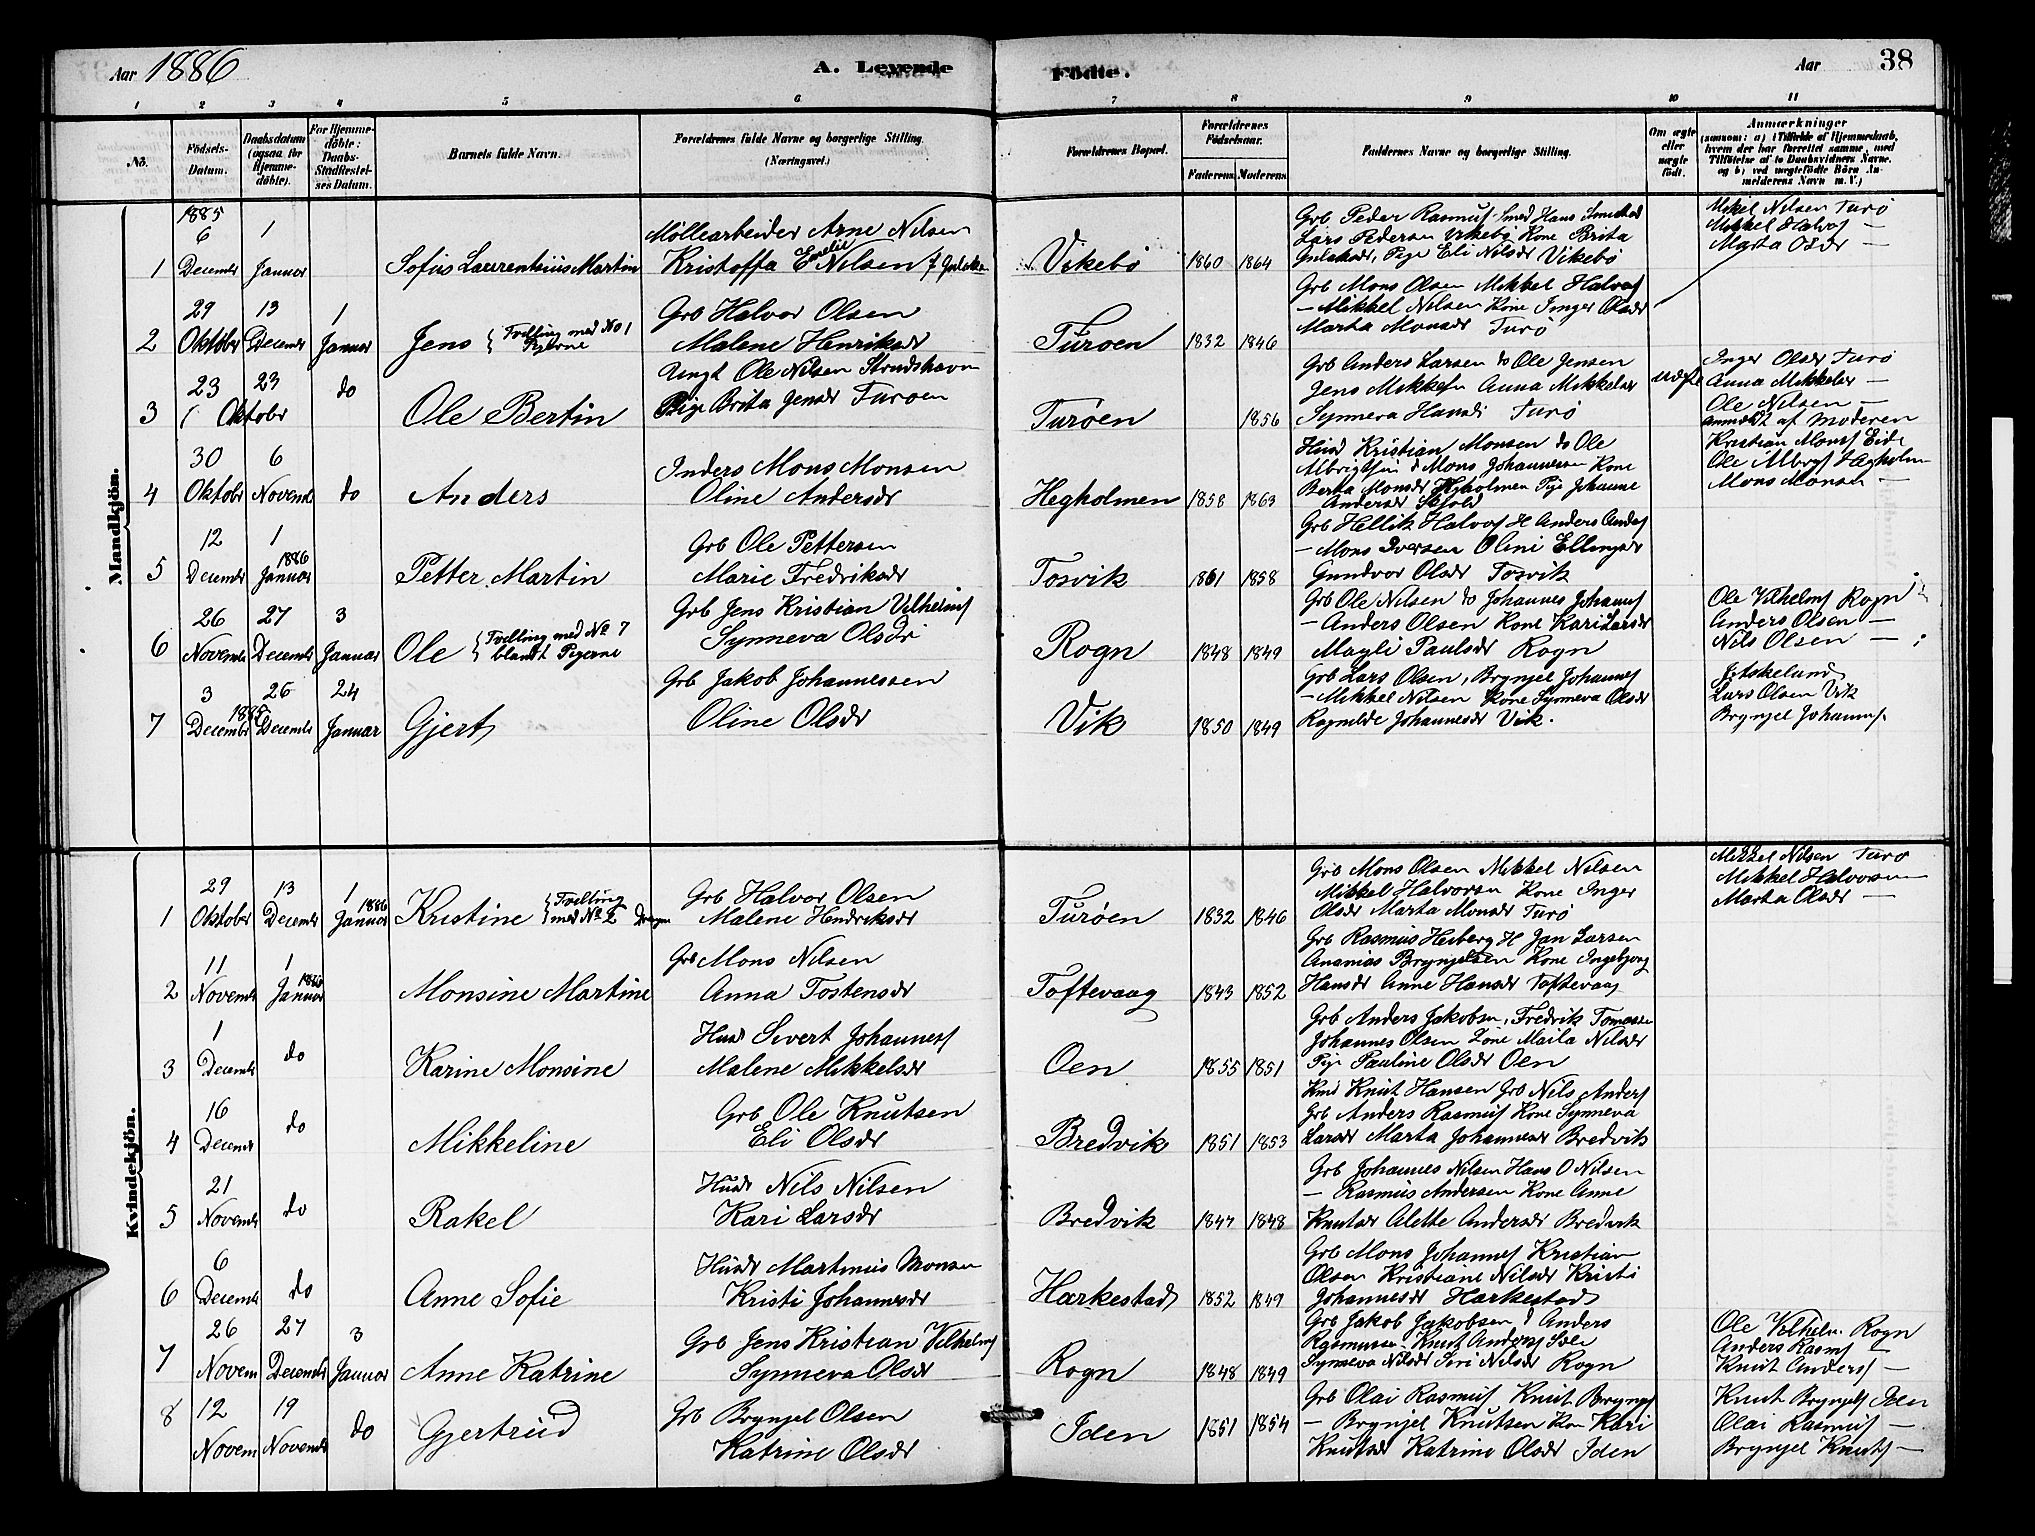 Aar 1886
A. Levende
Födte.
Aar
38
1 2 3 4 5 6 7 8 9 10 11
No.
Födsels-
Datum.
Daabsdatum
(ogsaa for
Hjemme-
döbte).
For Hjemme-
döbte:
Daabs-
Stadfæstel-
ses Datum.
Barnets fulde Navn.
Forældrenes fulde Navne og borgerlige Stilling.
(Næringsvei.)
Forældrenes Bopæl.
Forældrenes
Födselsaar.
Faderens. Moderens.
Faddernes Navne og borgerlige Stilling.
Om ægte
eller
uægte
födt.
Anmærkninger
(saasom: a) i Tilfælde af Hjemmedaab,
hvem der har forrettet samme, med
Tilföielse af to Daabsvidners Navne.
og b) ved uægtefödte Börn An-
melderens Navn m. V.)
Mandkjön.
1885
6 1
1 Decembr Januar
Sofus Laurentsius Martin
Møllearbeider Arne Nilsen
Kristoffa Emelie Nilsen f
Vikebö 1860 1864
Grb Peder Rasmusf Smed Hans
Lars Pedersen Vikebö Kone Brita
Pige Eli Nilsdr Vikebö
Mikel Nilsen Turö
Mikkel Halvorf —
Marta Olsdr —
29 13 1
2 Oktober Decembr Januar
Jens { Tvilling med No 1
Pigerne
Grb Halvor Olsen
Malene Henriksdr
Turoen 1832 1846
Grb Mons Olsen Mikkel Halvorf
— Mikkel Nilsen Kone Inger Olsdr
Marta Monsdr Turö
23 23 do
3 Oktobr
Ole Bertin
Ungk Ole Nilsen Strudshavn
Pige Brita Jensdr Turoen
Turöen 1856
Grb Anders Larsen do Ole Jensen
Jens Mikkelsn Anna Mikkelsdr
Synneva Hansdr Turö
uægte
Inger Olsdr Turö
Anna Mikkelsdr —
Ole Nilsen —
anmeldt af Moderen
30 6
4 Oktobr Novembr do
Anders
Inders Mons Monsen
Oline Andersdr
Hegholmen 1858 1863
Husd Kristian Monsen do Ole
Albrigtsen d Mons Johannesen Kone
Berta Monsdr Hegholmen Pige Johanne
Andersdr
Kristian Monsf Eide
Ole Albrgf Hegholmen
Mons Monsen —
12 1
5 Decembr 1886 Januar
Petter Martin
Grb Ole Pettersen
Marie Fredriksdr
Tosvik 1861 1858
Grb Hellik Halvorf H Anders Andf
— Mons Iversen Oline Ellingsdr
Gundvor Olsdr Tosvik
26 27 3
6 Novembr Decembr Januar
Ole { Tvilling med No 7
blandt Pigerne
Grb Jens Kristian Vilhelmf
Synneva Olsdr
Rogn 1848 1849
Grb Ole Nilsen do Johannes Johannsf
— Anders Olsen Kone Kari Larsdr
Magli Paulsdr Rogn
Ole Vilhelmf Rogn
Anders Olsen —
Nils Olsen —
3 26 24
7 Decembr 1885 Decembr Januar
Gjert
Grb Jakob Johannessen
Oline Olsdr
Vik 1850 1849
Grb Lars Olsen, Brynjel Johannesf
— Mikkel Nilsen Kone Synneva Olsdr
Ragnilde Johannesdr Vik.
J. Askeland
Lars Olsen Vik
Brynjel Johannesf.
Kvindekjön.
29 13 1
1 Oktober Decembr 1886 Januar
Kristine { Tvilling
med No 2 Drengene
Grb Halvor Olsen
Malene Hendriksdr
Turöen 1832 1846
Grb Mons Olsen Mikkel Nilsen
Mikkel Halvorsen Kone Inger
Olsdr Marta Monsdr Turö
Mikkel Nilsen Turö
Mikkel Halvorsen
Marta Olsdr —
11 1
2 Novembr 1886 Januar
Monsine Martine
Grb Mons Nilsen
Anna Tostensdr
Toftevaag 1843 1852
Grb Rasmus Heiberg H Jan Larsen
Ananias Brynjelsen Kone Ingebjorg
Hansdr Anne Hansdr Toftevaag
1
3 Decembr do
Karine Monsine
Husd Sivert Johannesf
Malene Mikkelsdr
Oen 1855 1851
Grb Anders Jakobsen, Fredrik Tomassen
Johannes Olsen Kone Maila Nilsdr
Pige Pauline Olsdr Oen
16
4 Decembr do
Mikkeline
Grb Ole Knutsen
Eli Olsdr
Bredvik 1851 1853
Knut Hansen Grb Nils Andersf
Grb Anders Rasmusf Kone Synneva
Larsdr Marta Johannesdr Bredvik
21
5 Novembr do
Rakel
Husd Nils Nilsen
Kari Larsdr
Bredvik 1847 1848
Grb Johannes Nilsen Hans O Nilsen
— Rasmus Andersen Kone Anne
Knutsdr Alette Andersdr Bredvik
6
6 Decembr do
Anne Sofie
Husd Martinus Monsen
Kristi Johannesdr
Harkestad 1852 1849
Grb Mons Johannesf Kristian
Olsen Kristiane Nilsdr Kristi
Johannesdr Harkestad
26 27 3
7 Novem Decembr Januar
Anne Katrine
Grb Jens Kristian Vilhelmsf
Synneva Olsdr
Rogn 1848 1849
Grb Jakob Jakobsen d Anders
Rasmussen Knut Andersf
Synneva Nilsdr Siri Nilsdr Rogn
Ole Vilhelm Rogn
Anders Rasmf —
Knut Andersf —
12 19
8 Novem Novembr do
Gjertrud
Grb Brynjel Olsen
Katrine Olsdr
Iden 1851 1854
Grb Olai Rasmusf Knut Brynjelf
— Brynjel Knutsen Kone Kari
Knutsdr Katrine Olsdr Iden
Knut Brynjelf Iden
Olai Rasmusf —
Brynjel Knutsf —